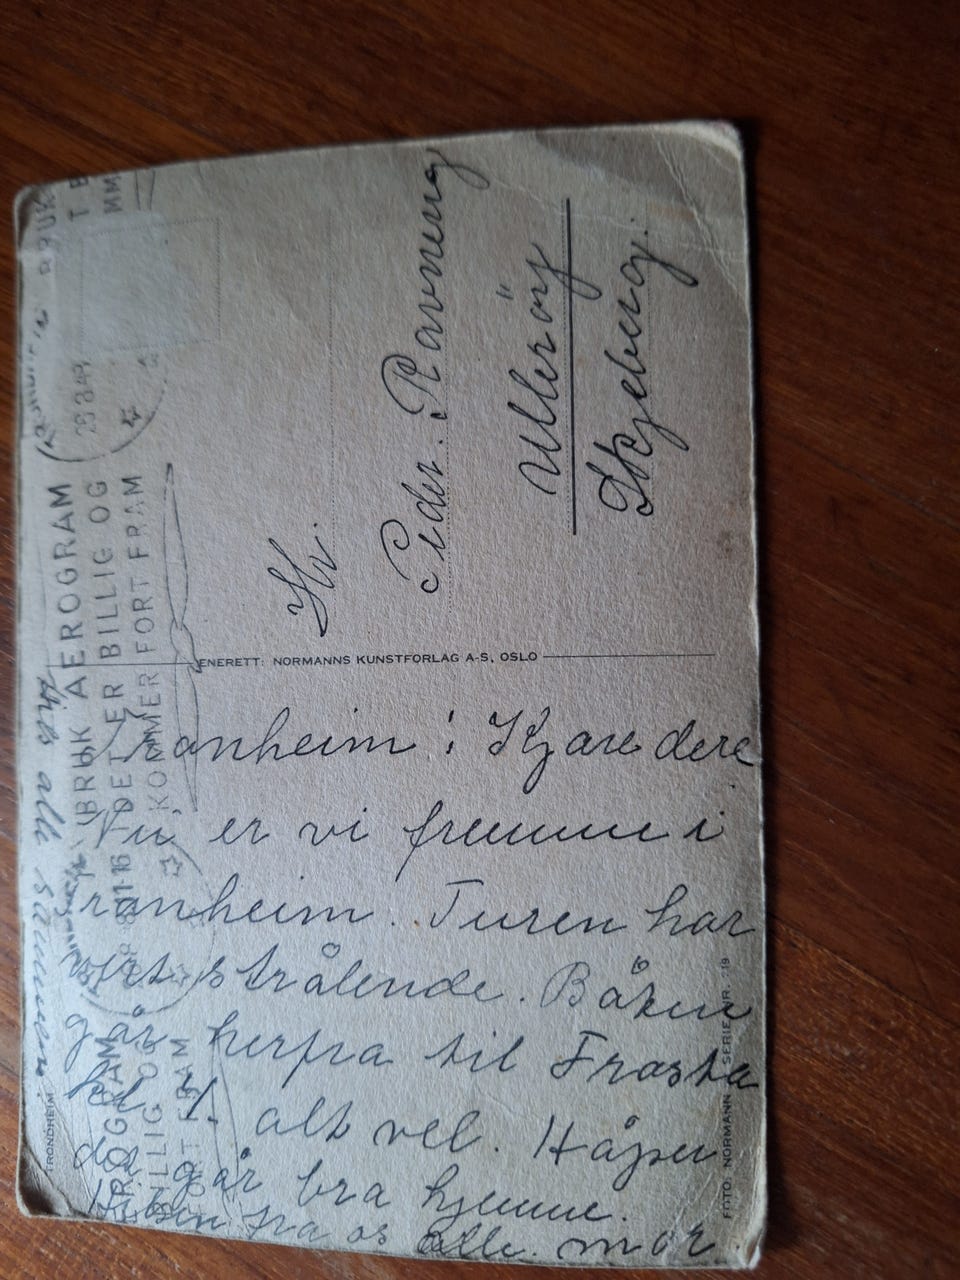 Tranheim! Kjære dere
Nu er vi fremme i
ranheim. Turen har
vært strålende. Båten
går herfra til Frosta
kl 4. alt vel. Håper
det går bra hjemme.
Hilsen fra os alle. mor.
Hils alle sammen.
TRONDHEIM
FOTO: NORMANN SERIE NR. 19
ENERETT: NORMANNS KUNSTFORLAG A-S, OSLO
BRUK AEROGRAM
DET ER BILLIG OG
KOMMER FORT FRAM
Hr.
Peder. Ravneng
Ullerøy
Skjeberg.